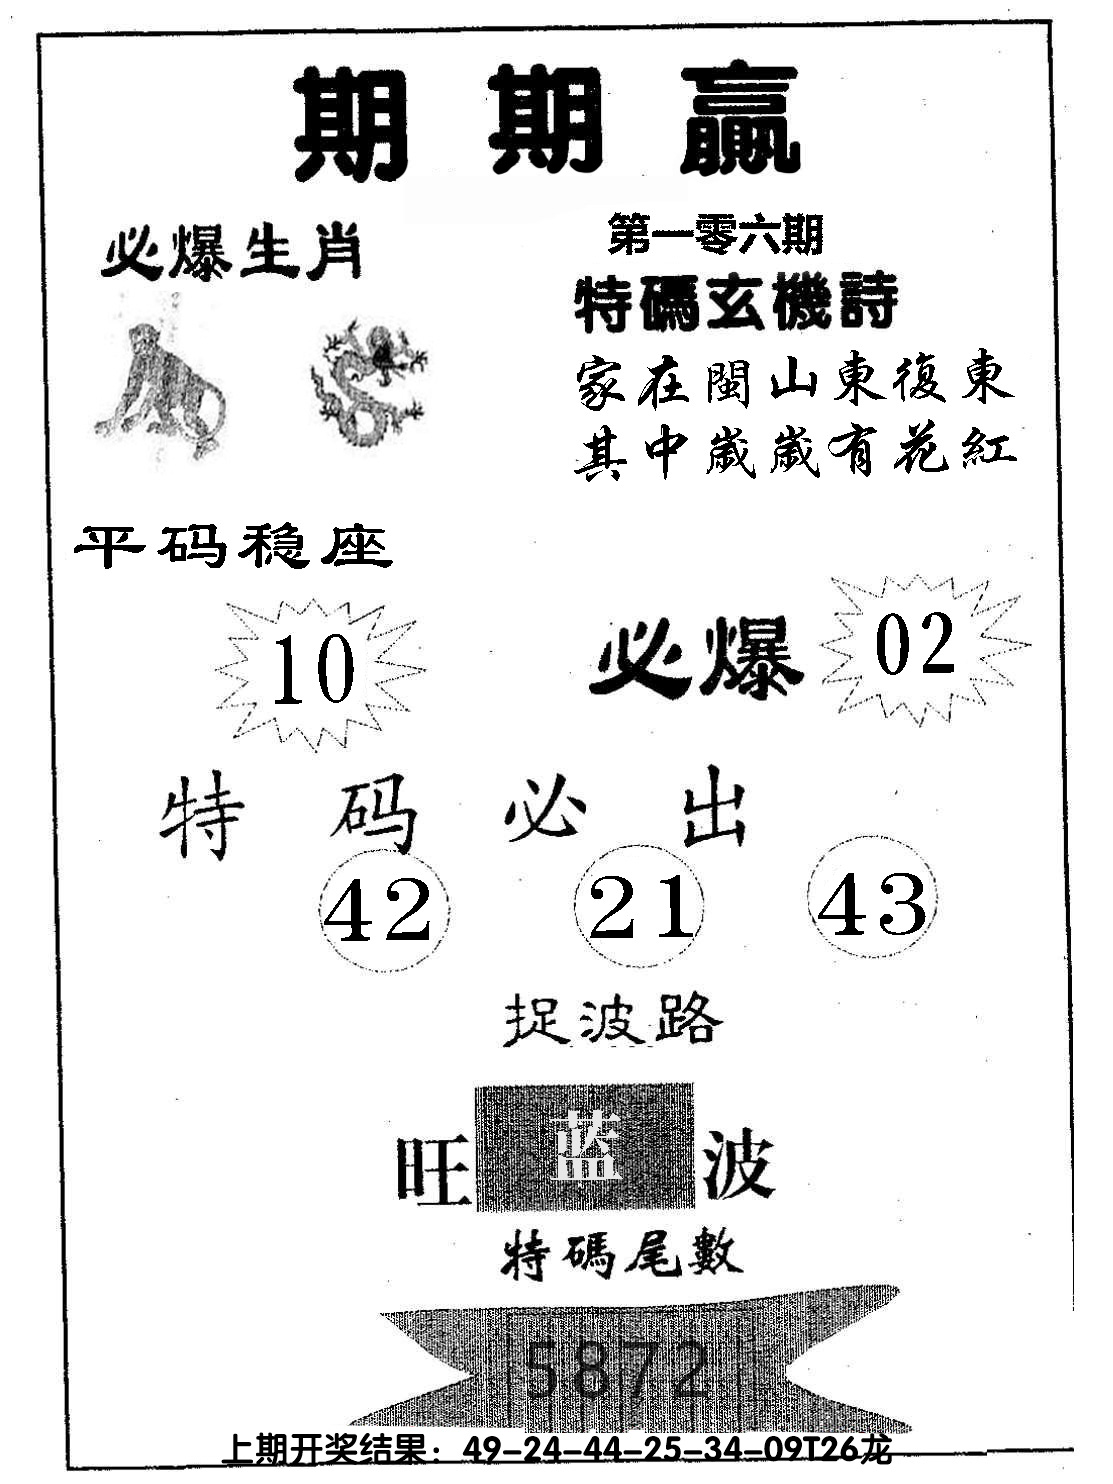 期期贏
必爆生肖
第一零六期
特碼玄機詩
家在閩山東復東
其中歲歲有花紅
平码稳座
10
必爆 02
特码必出
42 21 43
捉波路
旺蓝波
特碼尾數
5872
上期开奖结果：49-24-44-25-34-09T26龙